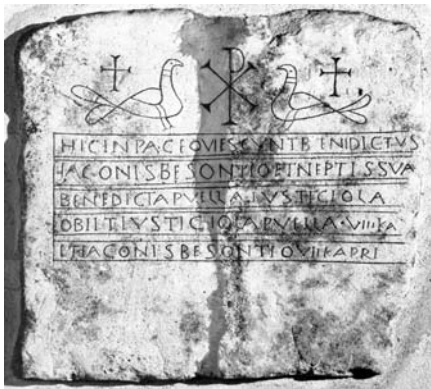 HIC IN PACE QVIESCVNT BENIDICTVS
IACONIS BESONTIO ET NEPTIS SVA
BENEDICTA PVELLA IVSTICIOLA
OBIIT IVSTICIOLA PVELLA · VIII KA
BESONTIO VII KAPRI